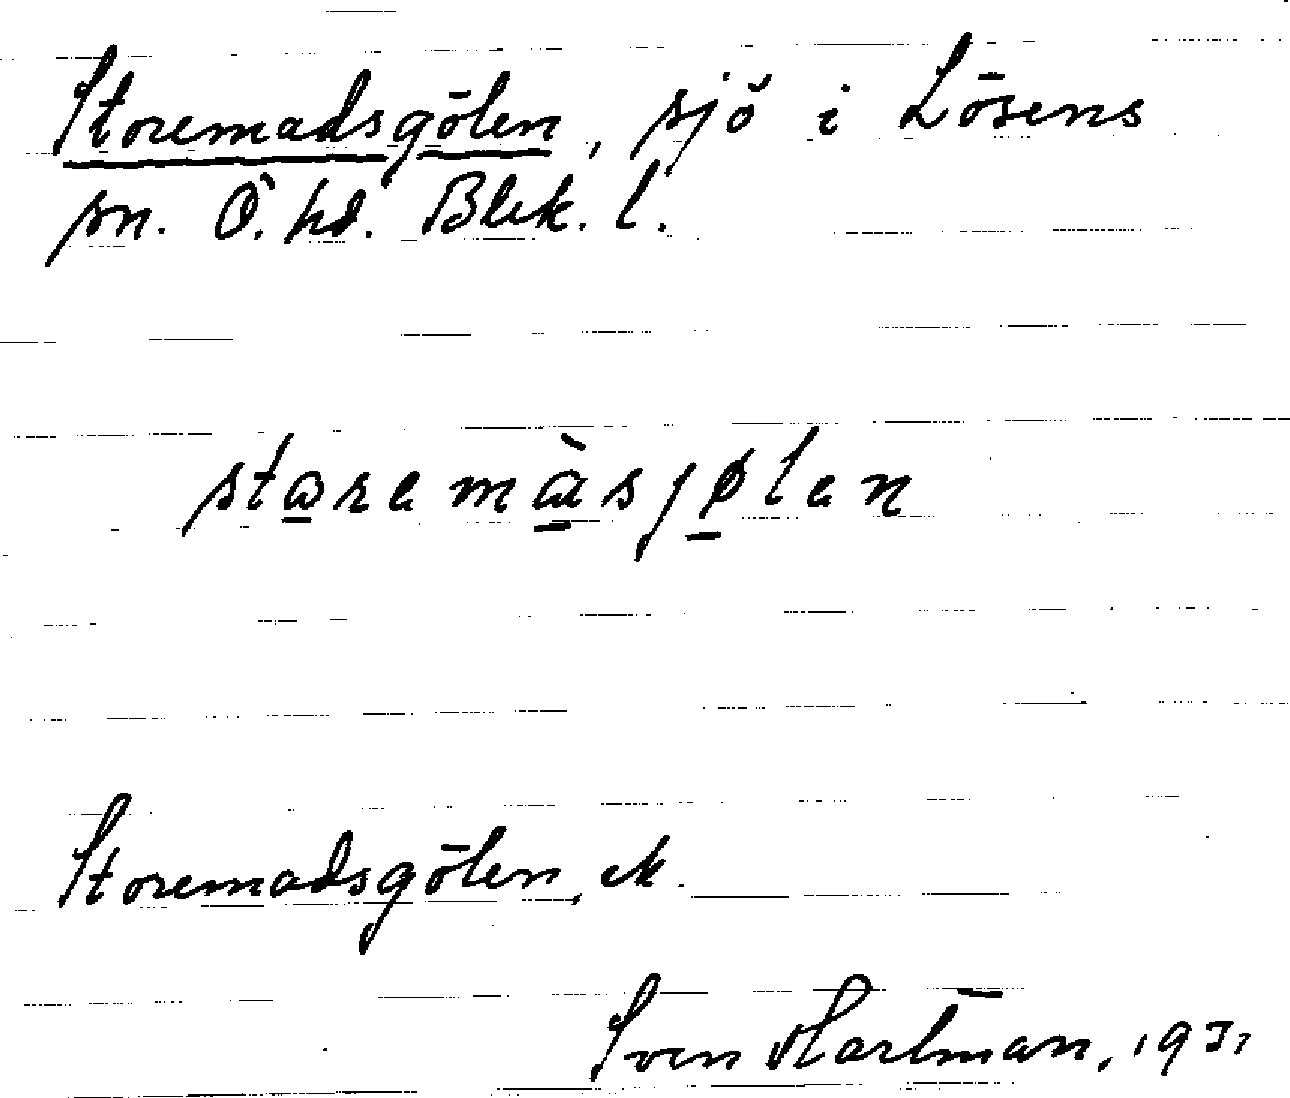 Storemadsgölen, sjö i Lösens
sn. Ö. hd. Blek. l.
storemàsjølen
Storemadsgölen, ek.
Sven Hartman, 1931